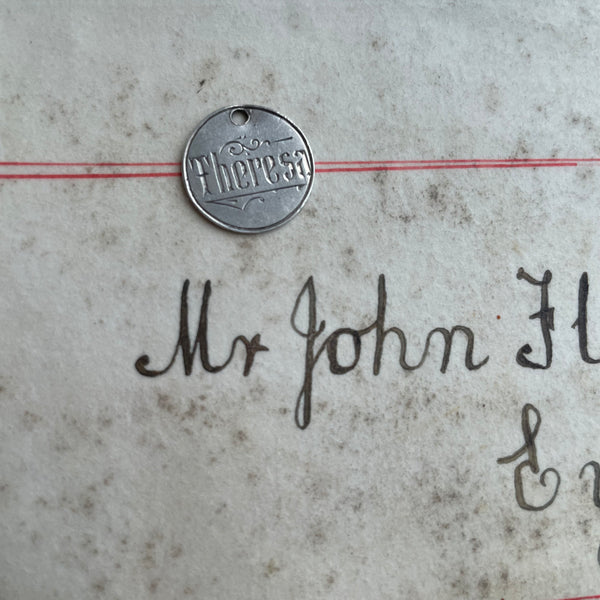 Theresa
Mr John Fl
E